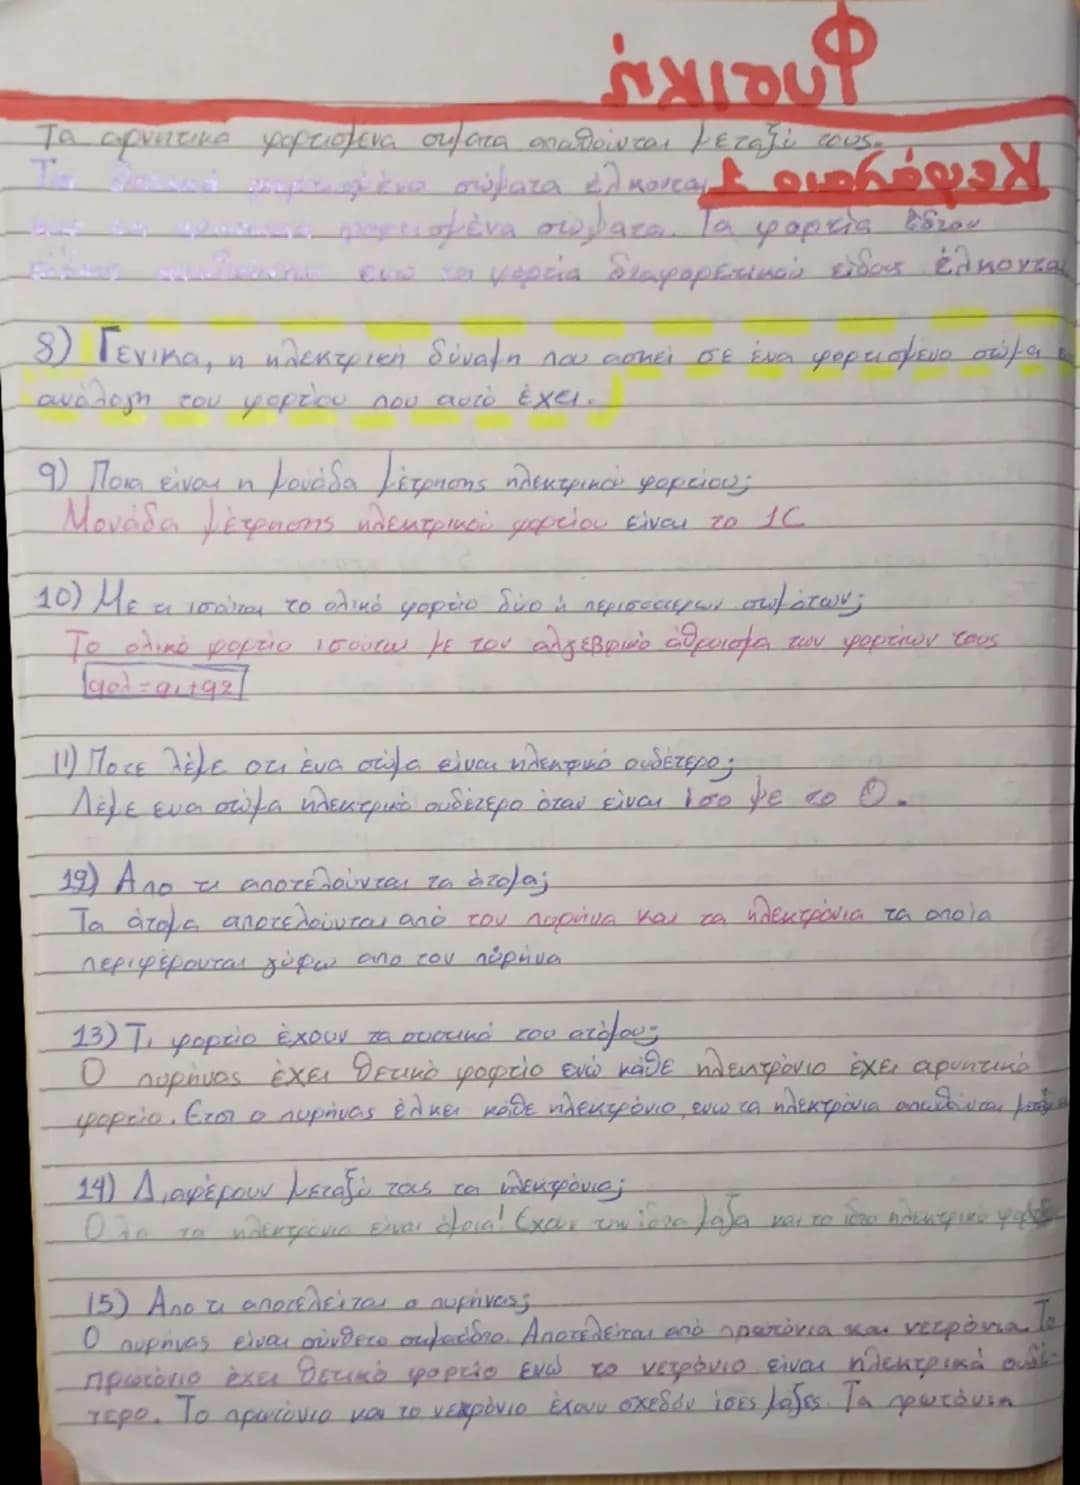 Φυσική
Τα αρνητικα φορτισμενα σωματα απωθούνται μεταξύ τους.
Κεφάλαιο 1
Τα θετικά φορτισμένα σώματα έλκονται
φορτισμένα σωματα. Τα φορτία ίδιου
ενω τα φορτία διαφορετικού είδους έλκονται
8) Γενικα, η ηλεκτρική δύναμη που ασκεί σε ένα φορτισμενο σώμα
ανάλογη του φορτίου που αυτό έχει.
9) Ποια είναι η μονάδα μέτρησης ηλεκτρικού φορτίου;
Μονάδα μέτρησης ηλεκτρικού φορτίου είναι το 1C
10) Με τι ισούται το ολικό φορτίο δύο ή περισσοτερων σωμάτων;
Το ολικό φορτίο ισούται με τον αλγεβρικό άθροισμα των φορτίων τους
qολ=q1+q2
11) Ποτε λέμε οτι ένα σώμα είναι ηλεκτρικό ουδέτερο;
Λέμε ενα σώμα ηλεκτρικό ουδέτερο όταν είναι ίσο με το 0.
12) Απο τι αποτελούνται τα άτομα;
Τα άτομα αποτελούνται από τον πυρήνα και τα ηλεκτρόνια τα οποία
περιφέρονται γύρω απο τον πύρηνα
13) Τι φορτίο έχουν τα συστικά του ατόμου;
Ο πυρήνας έχει θετικό φορτίο ενώ κάθε ηλεκτρόνιο έχει αρνητικό
φορτίο. Ετσι ο πυρήνας έλκει κάθε ηλεκτρόνιο, ενω τα ηλεκτρόνια απωθούνται
14) Διαφέρουν μεταξύ τους τα ηλεκτρόνια;
Ολα τα ηλεκτρονια είναι όμοια! Εχουν την ίδια μάζα και το ίδιο ηλεκτρικό
15) Απο τι αποτελείται ο πυρήνας;
Ο πυρήνας είναι σύνθετο σωματίδιο. Αποτελείται από πρωτόνια και νετρόνια. Το
πρωτόνιο έχει θετικό φορτίο ενώ το νετρόνιο είναι ηλεκτρικά ουδέ-
τερο. Το πρωτόνιο και το νετρόνιο έχουν σχεδόν ίσες μάζες. Τα πρωτόνια